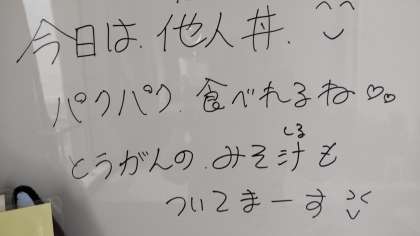 今日は、他人丼。
パクパク、食べれるね♡♡
とうがんの、みそ汁も
しる
ついてまーす